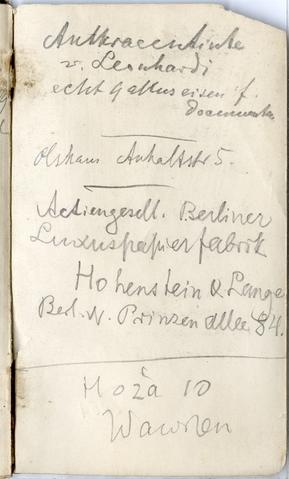 Anthracentinte
v. Leonhardi
echt Gallus eisen f.
Documente
Olshaus Anhaltstr 5.
Actiengesell. Berliner
Luxuspapierfabrik
Hohenstein & Lange
Berl. N. Prinzen allee 84.
Hoża 10